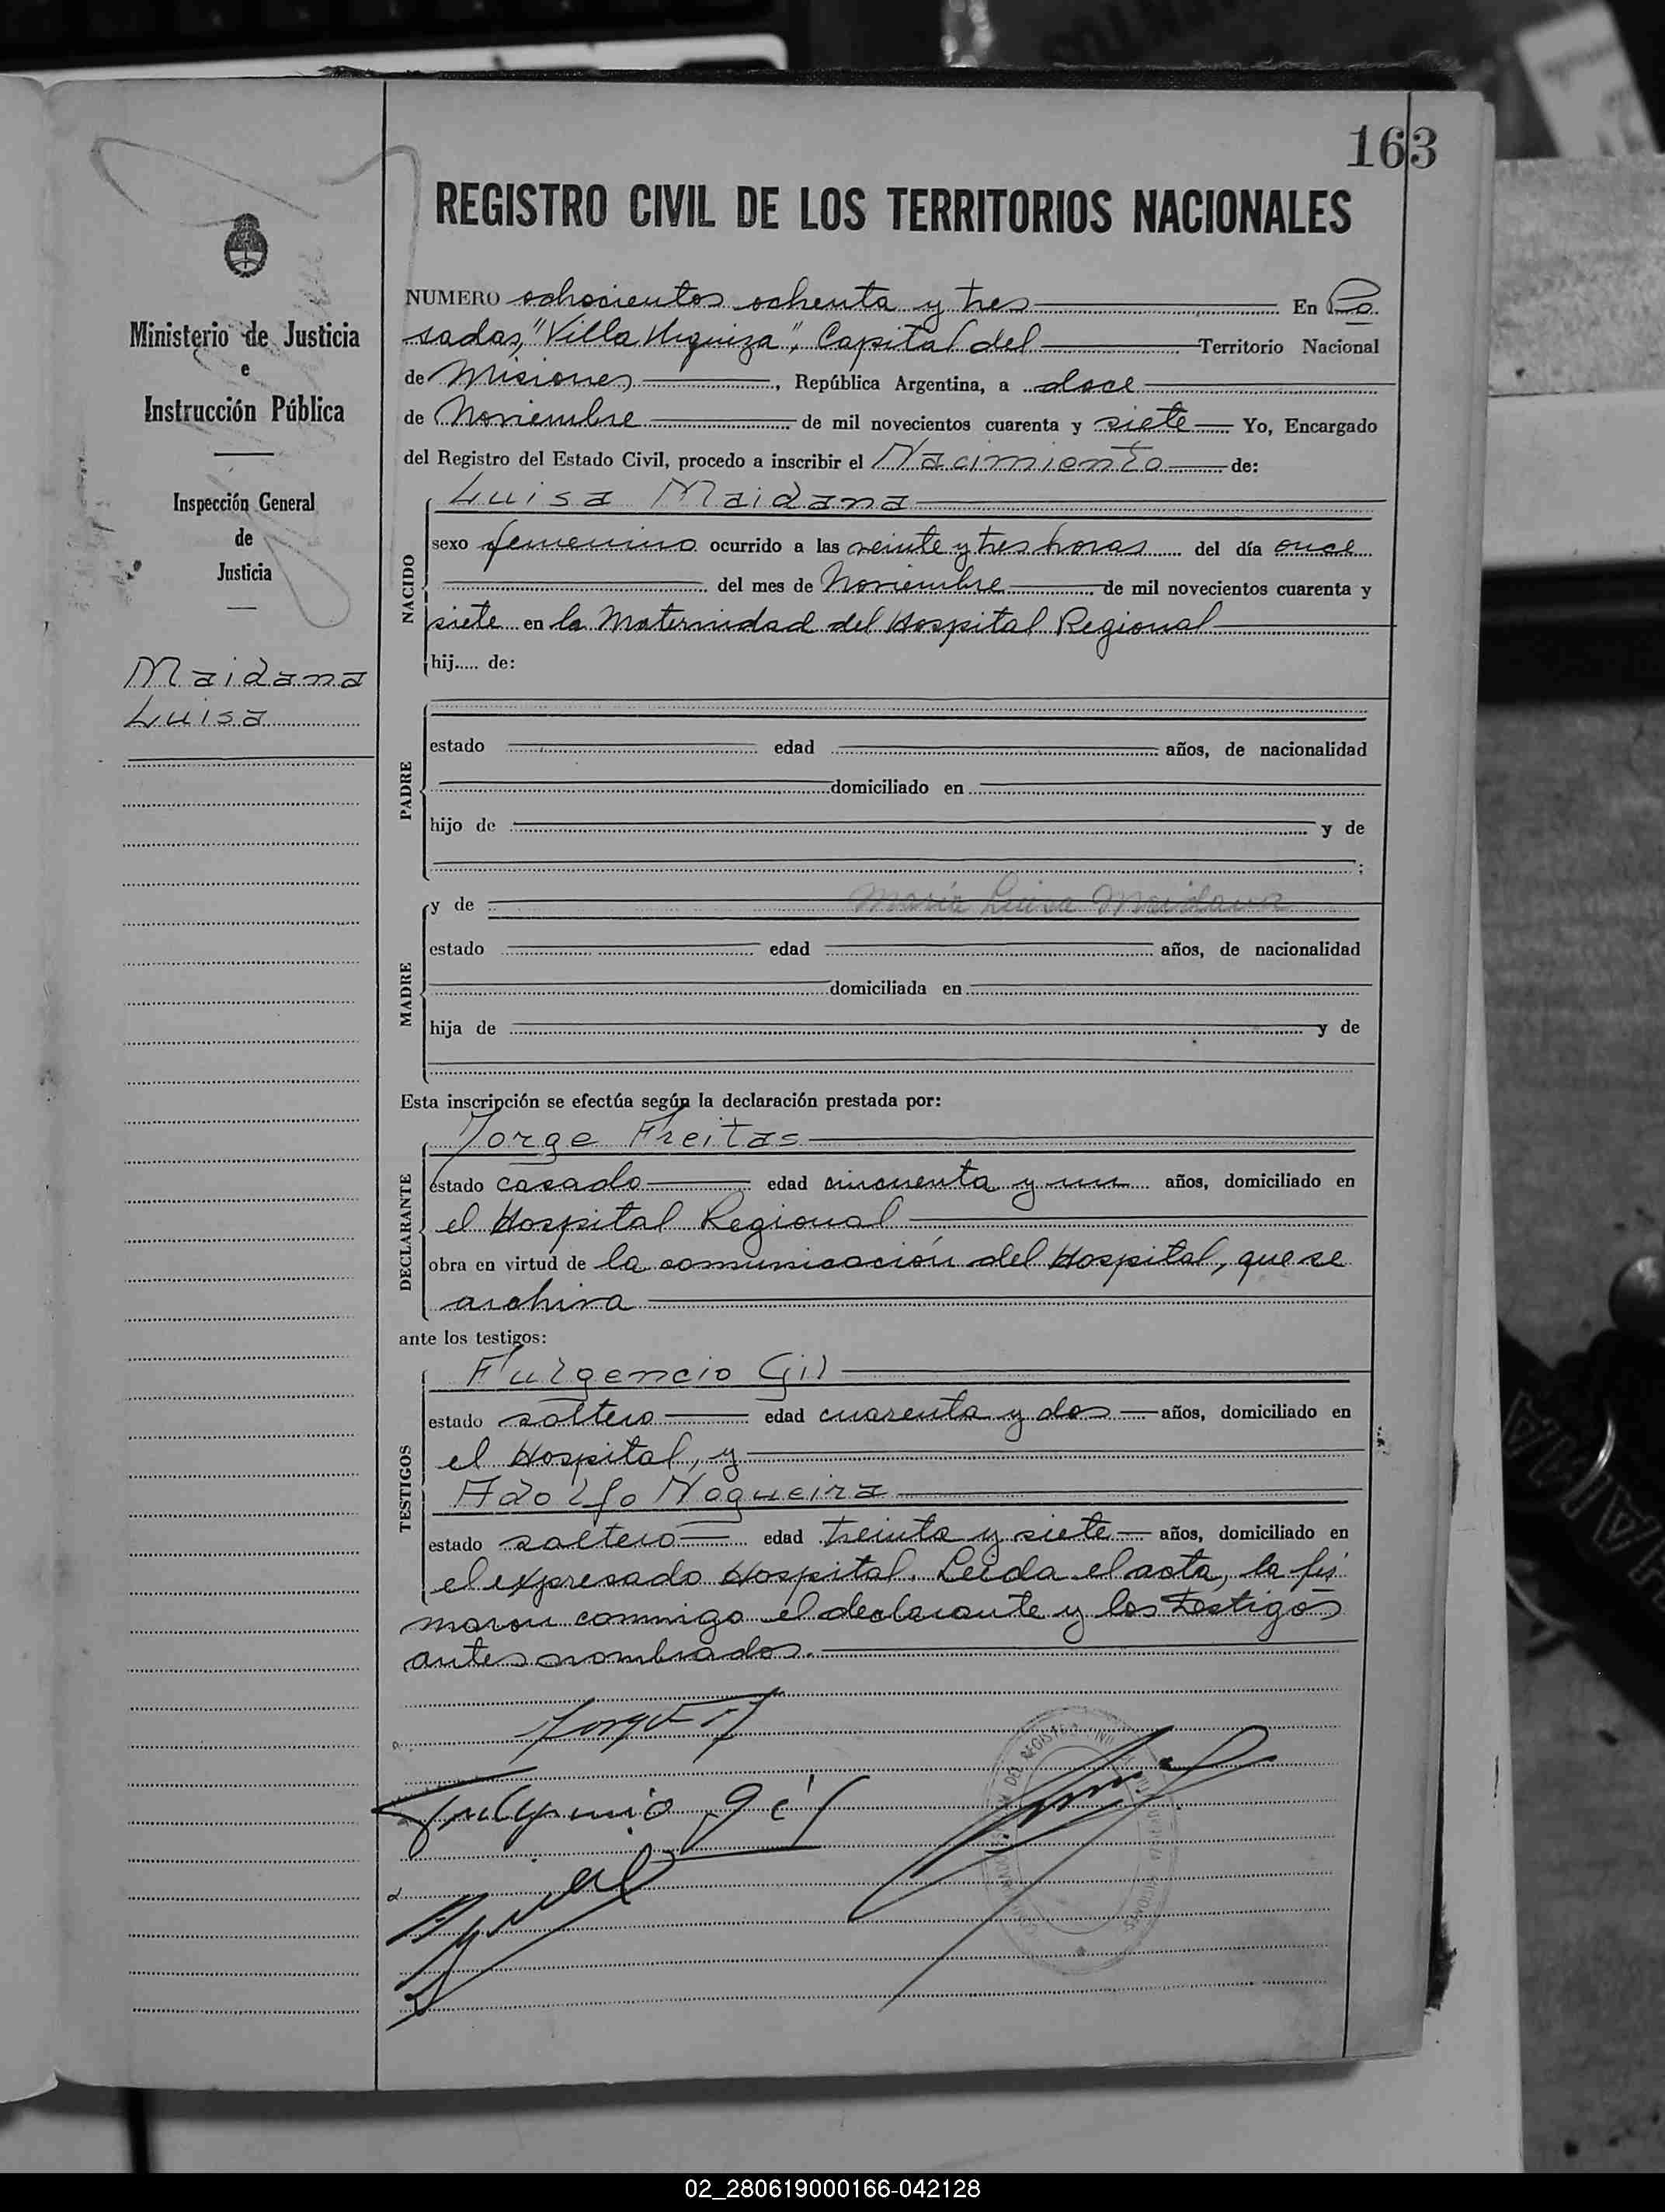 163
REGISTRO CIVIL DE LOS TERRITORIOS NACIONALES
Ministerio de Justicia
e
Instrucción Pública
Inspección General
de
Justicia
Maidana
Luisa
NUMERO ochocientos ochenta y tres En Po
sadas, "Villa Urquiza", Capital del Territorio Nacional
de Misiones, República Argentina, a doce
de Noviembre de mil novecientos cuarenta y siete Yo, Encargado
del Registro del Estado Civil, procedo a inscribir el Nacimiento de:
NACIDO
Luisa Maidana
sexo femenino ocurrido a las veinte y tres horas del día once
del mes de Noviembre de mil novecientos cuarenta y
siete en la Maternidad del Hospital Regional
hij..... de:
PADRE
estado edad años, de nacionalidad
domiciliado en
hijo de y de
;
MADRE
y de María Luisa Maidana
estado edad años, de nacionalidad
domiciliada en
hija de y de
Esta inscripción se efectúa según la declaración prestada por:
DECLARANTE
Jorge Freitas
estado casado edad cincuenta y un años, domiciliado en
el Hospital Regional
obra en virtud de la comunicación del Hospital, que se
archiva
ante los testigos:
TESTIGOS
Furgencio Gil
estado soltero edad cuarenta y dos años, domiciliado en
el Hospital, y
Adolfo Nogueira
estado soltero edad treinta y siete años, domiciliado en
el expresado Hospital. Leída el acta, la fir
maron conmigo el declarante y los testigos
antes nombrados.
Jorge F
Fulgencio Gil
DEL REGISTRO CIVIL
MISIONES
02_280619000166-042128